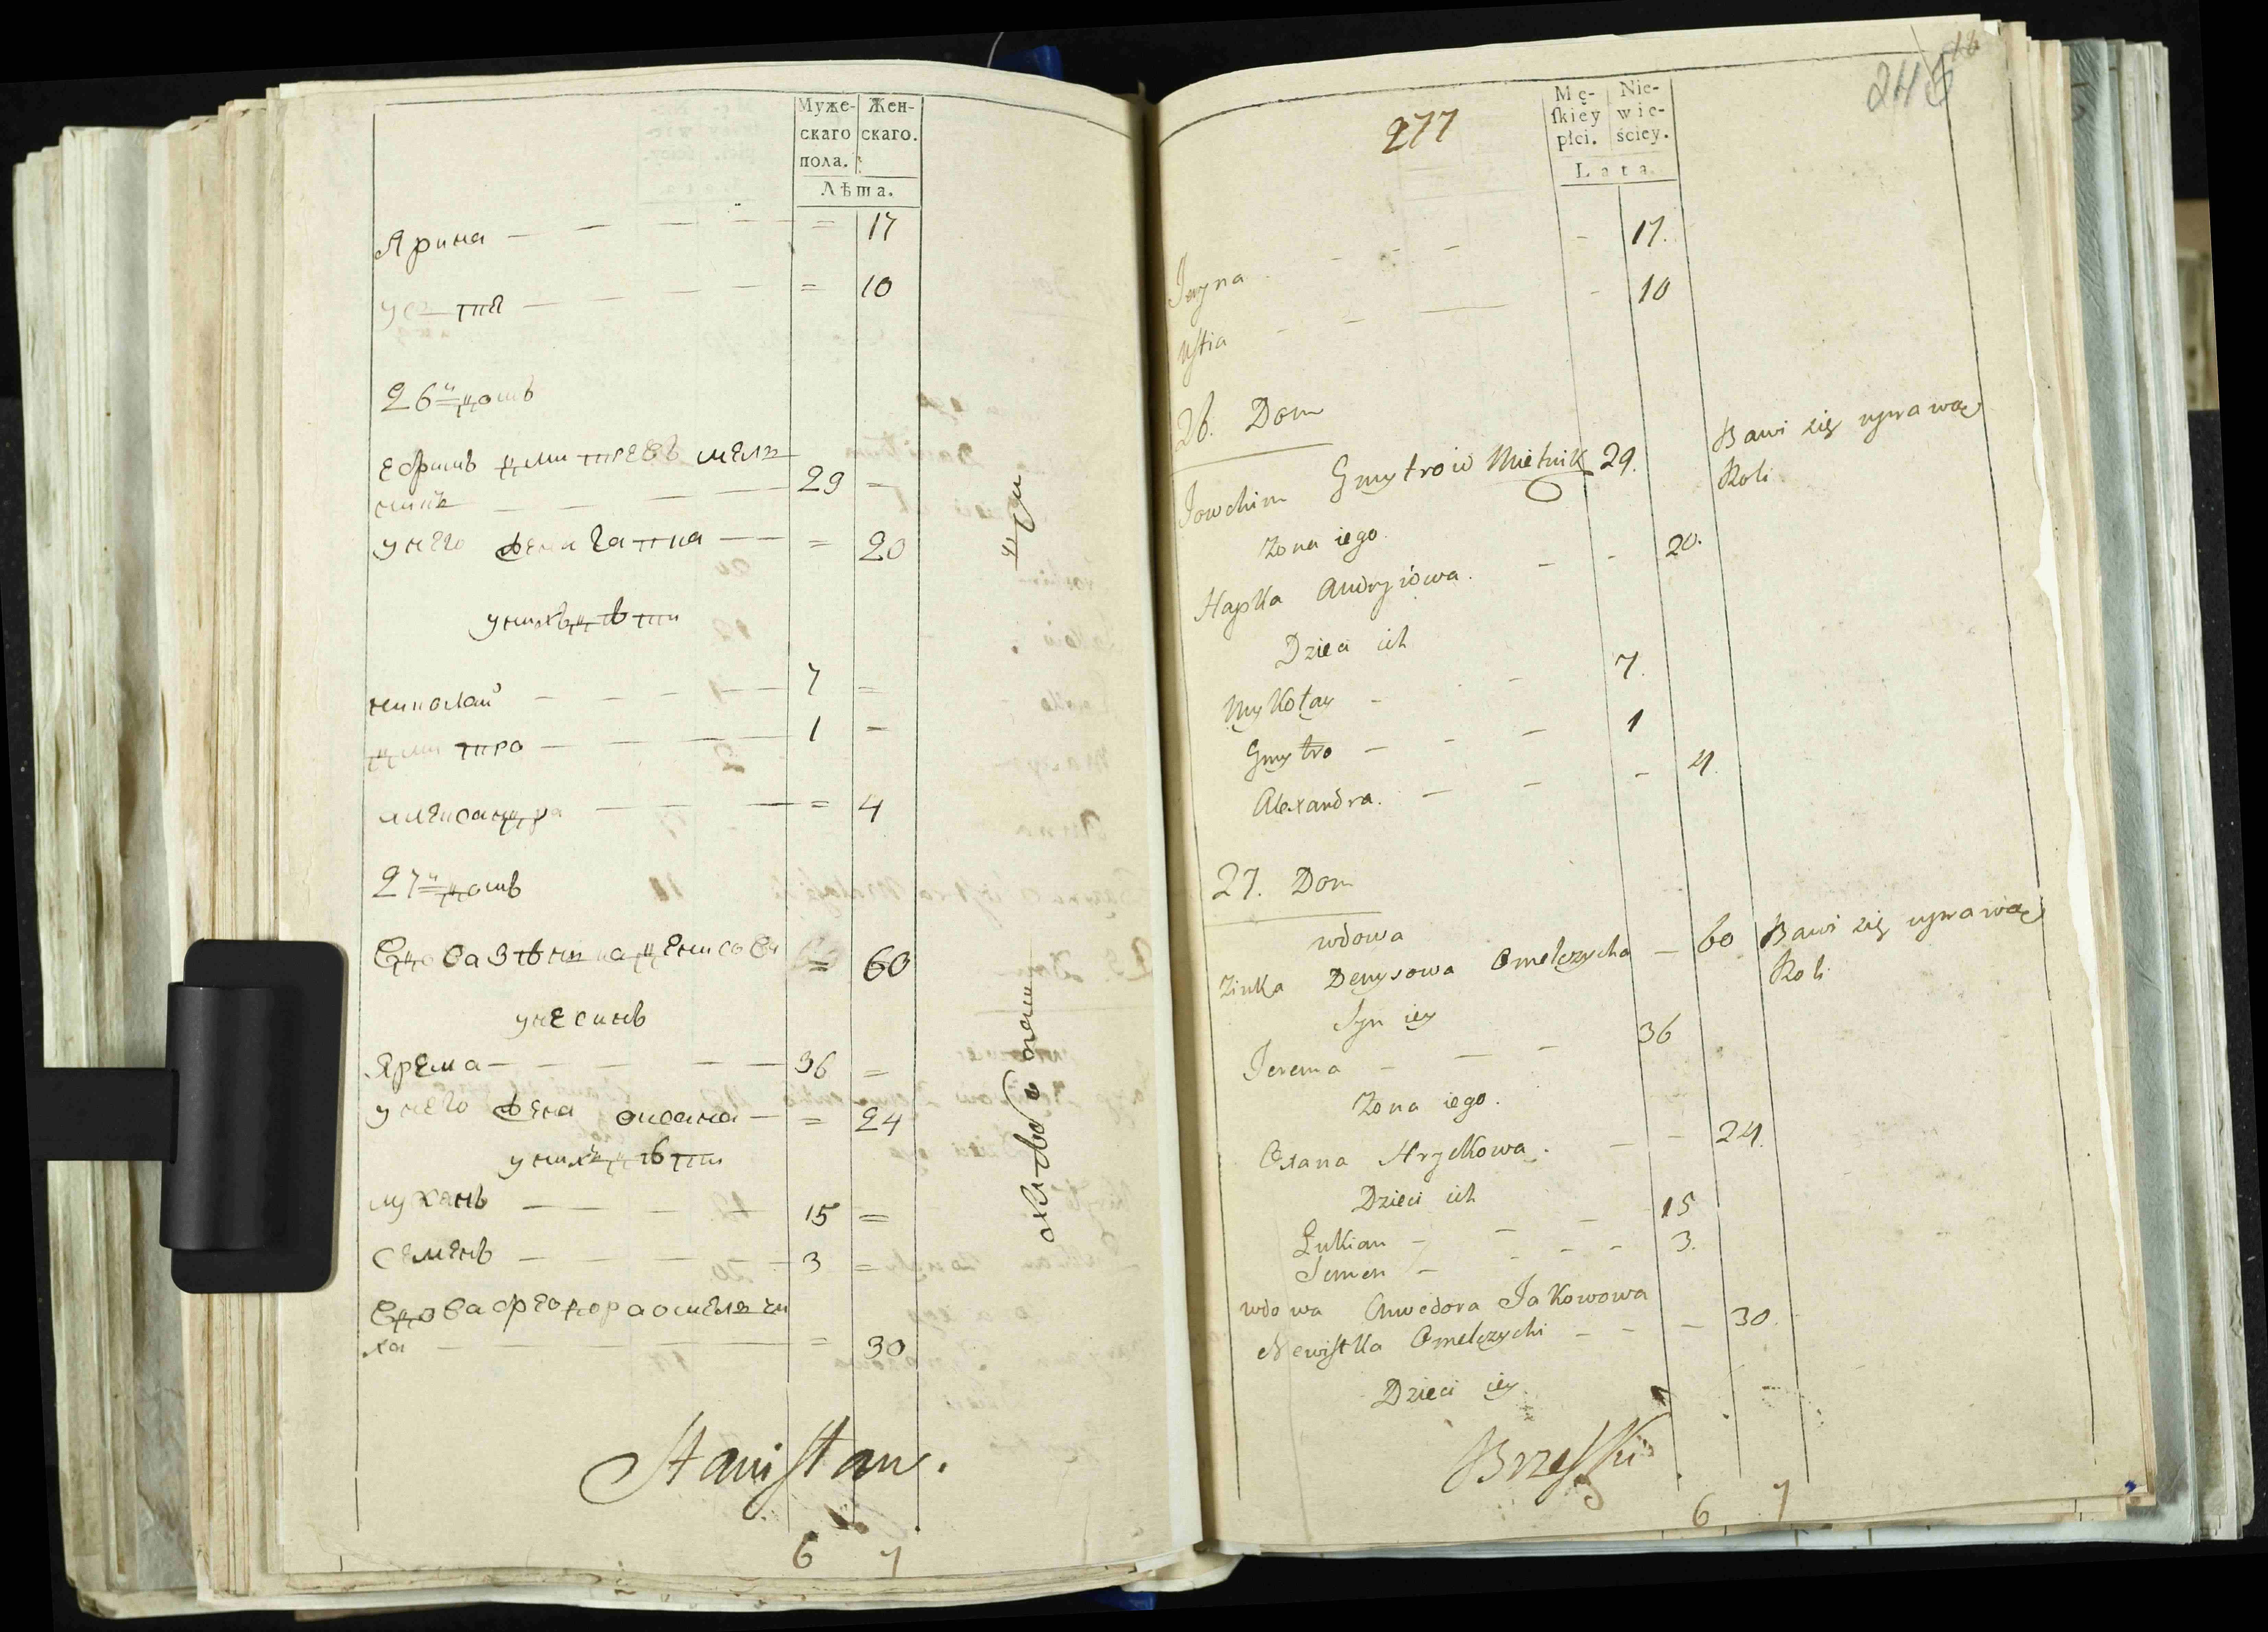 Муже- Жен-
скаго скаго.
пола.
Лѣта.
Ярина — — — — = 17
Устя — — — — = 10
26й домъ
Ефимъ дмитревъ мелъ
никъ — — — 29 =
унего жена гапка — — = 20
унихъ дѣти
николай — — — — 7 =
дмитро — — — — 1 =
александра — — — = 4
27й домъ
вдова зѣнька денисова = 60
унее синъ
Ярема — — — — 36 =
унего жена оксана — = 24
унихъ дѣти
луkянъ — — — — 15 =
семенъ — — — — 3 =
вдова феодора омельчи
ха — — — — = 30
Stanisław.
6 7
277
Mę- Nie-
ſkiey wie-
płci. ściey.
Lata.
Jryna - - - - 17.
Uſtia - - — - 10
26. Dom
Jowchim Gmytrów Mielnik 29. Bawi się uprawą
Roli
Żona iego.
Hapka Andryiowa. - - 20.
Dzieci ich
Mykołay - - - 7.
Gmytro - - - 1
Alexandra. - - - 4.
27. Dom
wdowa
Zinka Denysowa Omelczycha — 60 Bawi się uprawą
Roli
Syn iey
Jerema - — - 36
Żona iego.
Oxana Hryckowa. - - 24.
Dzieci ich
Łukian - - - 15
Semen - - - - 3.
wdowa Chwedora Jakowowa
Newiſtka Omelczychi - - - 30.
Dzieci iey
Brzeſki
6 7